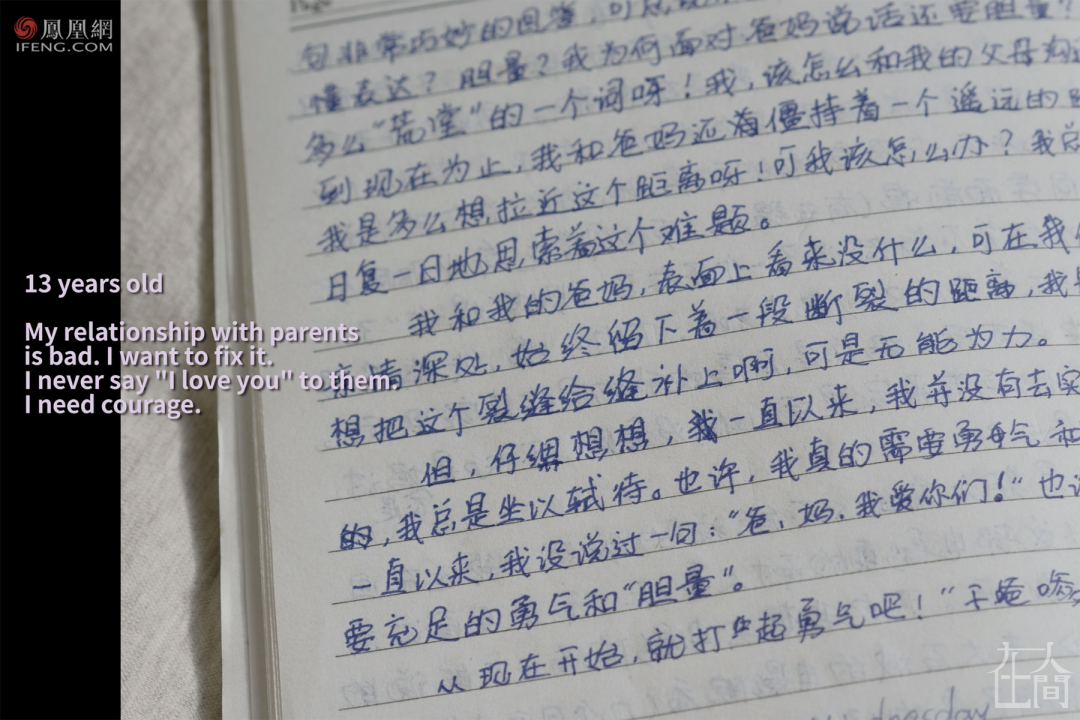 鳳凰網
IFENG.COM
Page
句非常巧妙的回答,可是,
懂表达?胆量?我为何面对爸妈说话还要胆量?
多么“荒堂”的一个词呀!我,该怎么和我的父母沟通
到现在为止,我和爸妈还海僵持着一个遥远的距
我是多么想拉近这个距离呀!可我该怎么办?我总
日复一日地思索着这个难题。
我和我的爸妈,表面上看来没什么,可在我
亲情深处,始终留下着一段断裂的距离,我
想把这个裂缝给缝补上啊,可是无能为力。
但,仔细想想,我一直以来,我并没有去实
的,我总是坐以轼待。也许,我真的需要勇气和
一直以来,我没说过一句:“爸、妈,我爱你们!”也
要充足的勇气和“胆量”。
从现在开始,就打起勇气吧!”不
13 years old
My relationship with parents
is bad. I want to fix it.
I never say "I love you" to them.
I need courage.
在人間